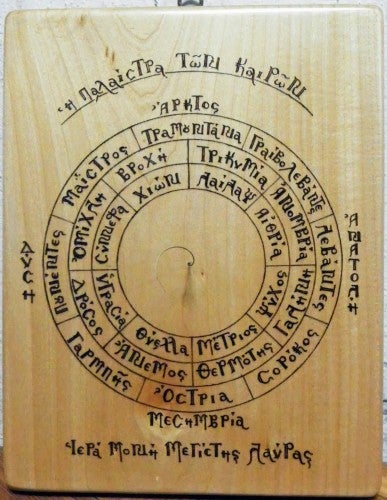 Ἡ ΠΑΛΑΙΣΤΡΑ ΤῶΝ ΚΑΙΡῶΝ
ἌΡΚΤΟΣ
ΤΡΑΜΟΝΤΑΝΑ
ΓΡΑΙΒΟΛΕΒΑΝΤΕΣ
ΛΕΒΑΝΤΕΣ
ΣΟΡΟΚΟΣ
ὌΣΤΡΙΑ
ΓΑΡΜΠΗΣ
ΠΟΝΕΝΤΕΣ
ΜΑΪΣΤΡΟΣ
ΒΡΟΧΗ
ΤΡΙΚΥΜΙΑ
ἈΝΟΜΒΡΙΑ
ΓΑΛΗΝΗ
ΘΕΡΜΟΤΗΣ
ἌΝΕΜΟΣ
ΔΡΟΣΟΣ
ὈΜΙΧΛΗ
ΧΙΩΝ
ΛΑΙΛΑΨ
ΑἸΘΡΙΑ
ΨΥΧΟΣ
ΜΕΤΡΙΟΣ
ΘΥΕΛΛΑ
ὙΓΡΑΣΙΑ
ΣΥΝΝΕΦΑ
ἈΝΑΤΟΛΗ
ΔΥΣΗ
ΜΕΣΗΜΒΡΙΑ
ἹΕΡΑ ΜΟΝΗ ΜΕΓΙΣΤΗΣ ΛΑΥΡΑΣ